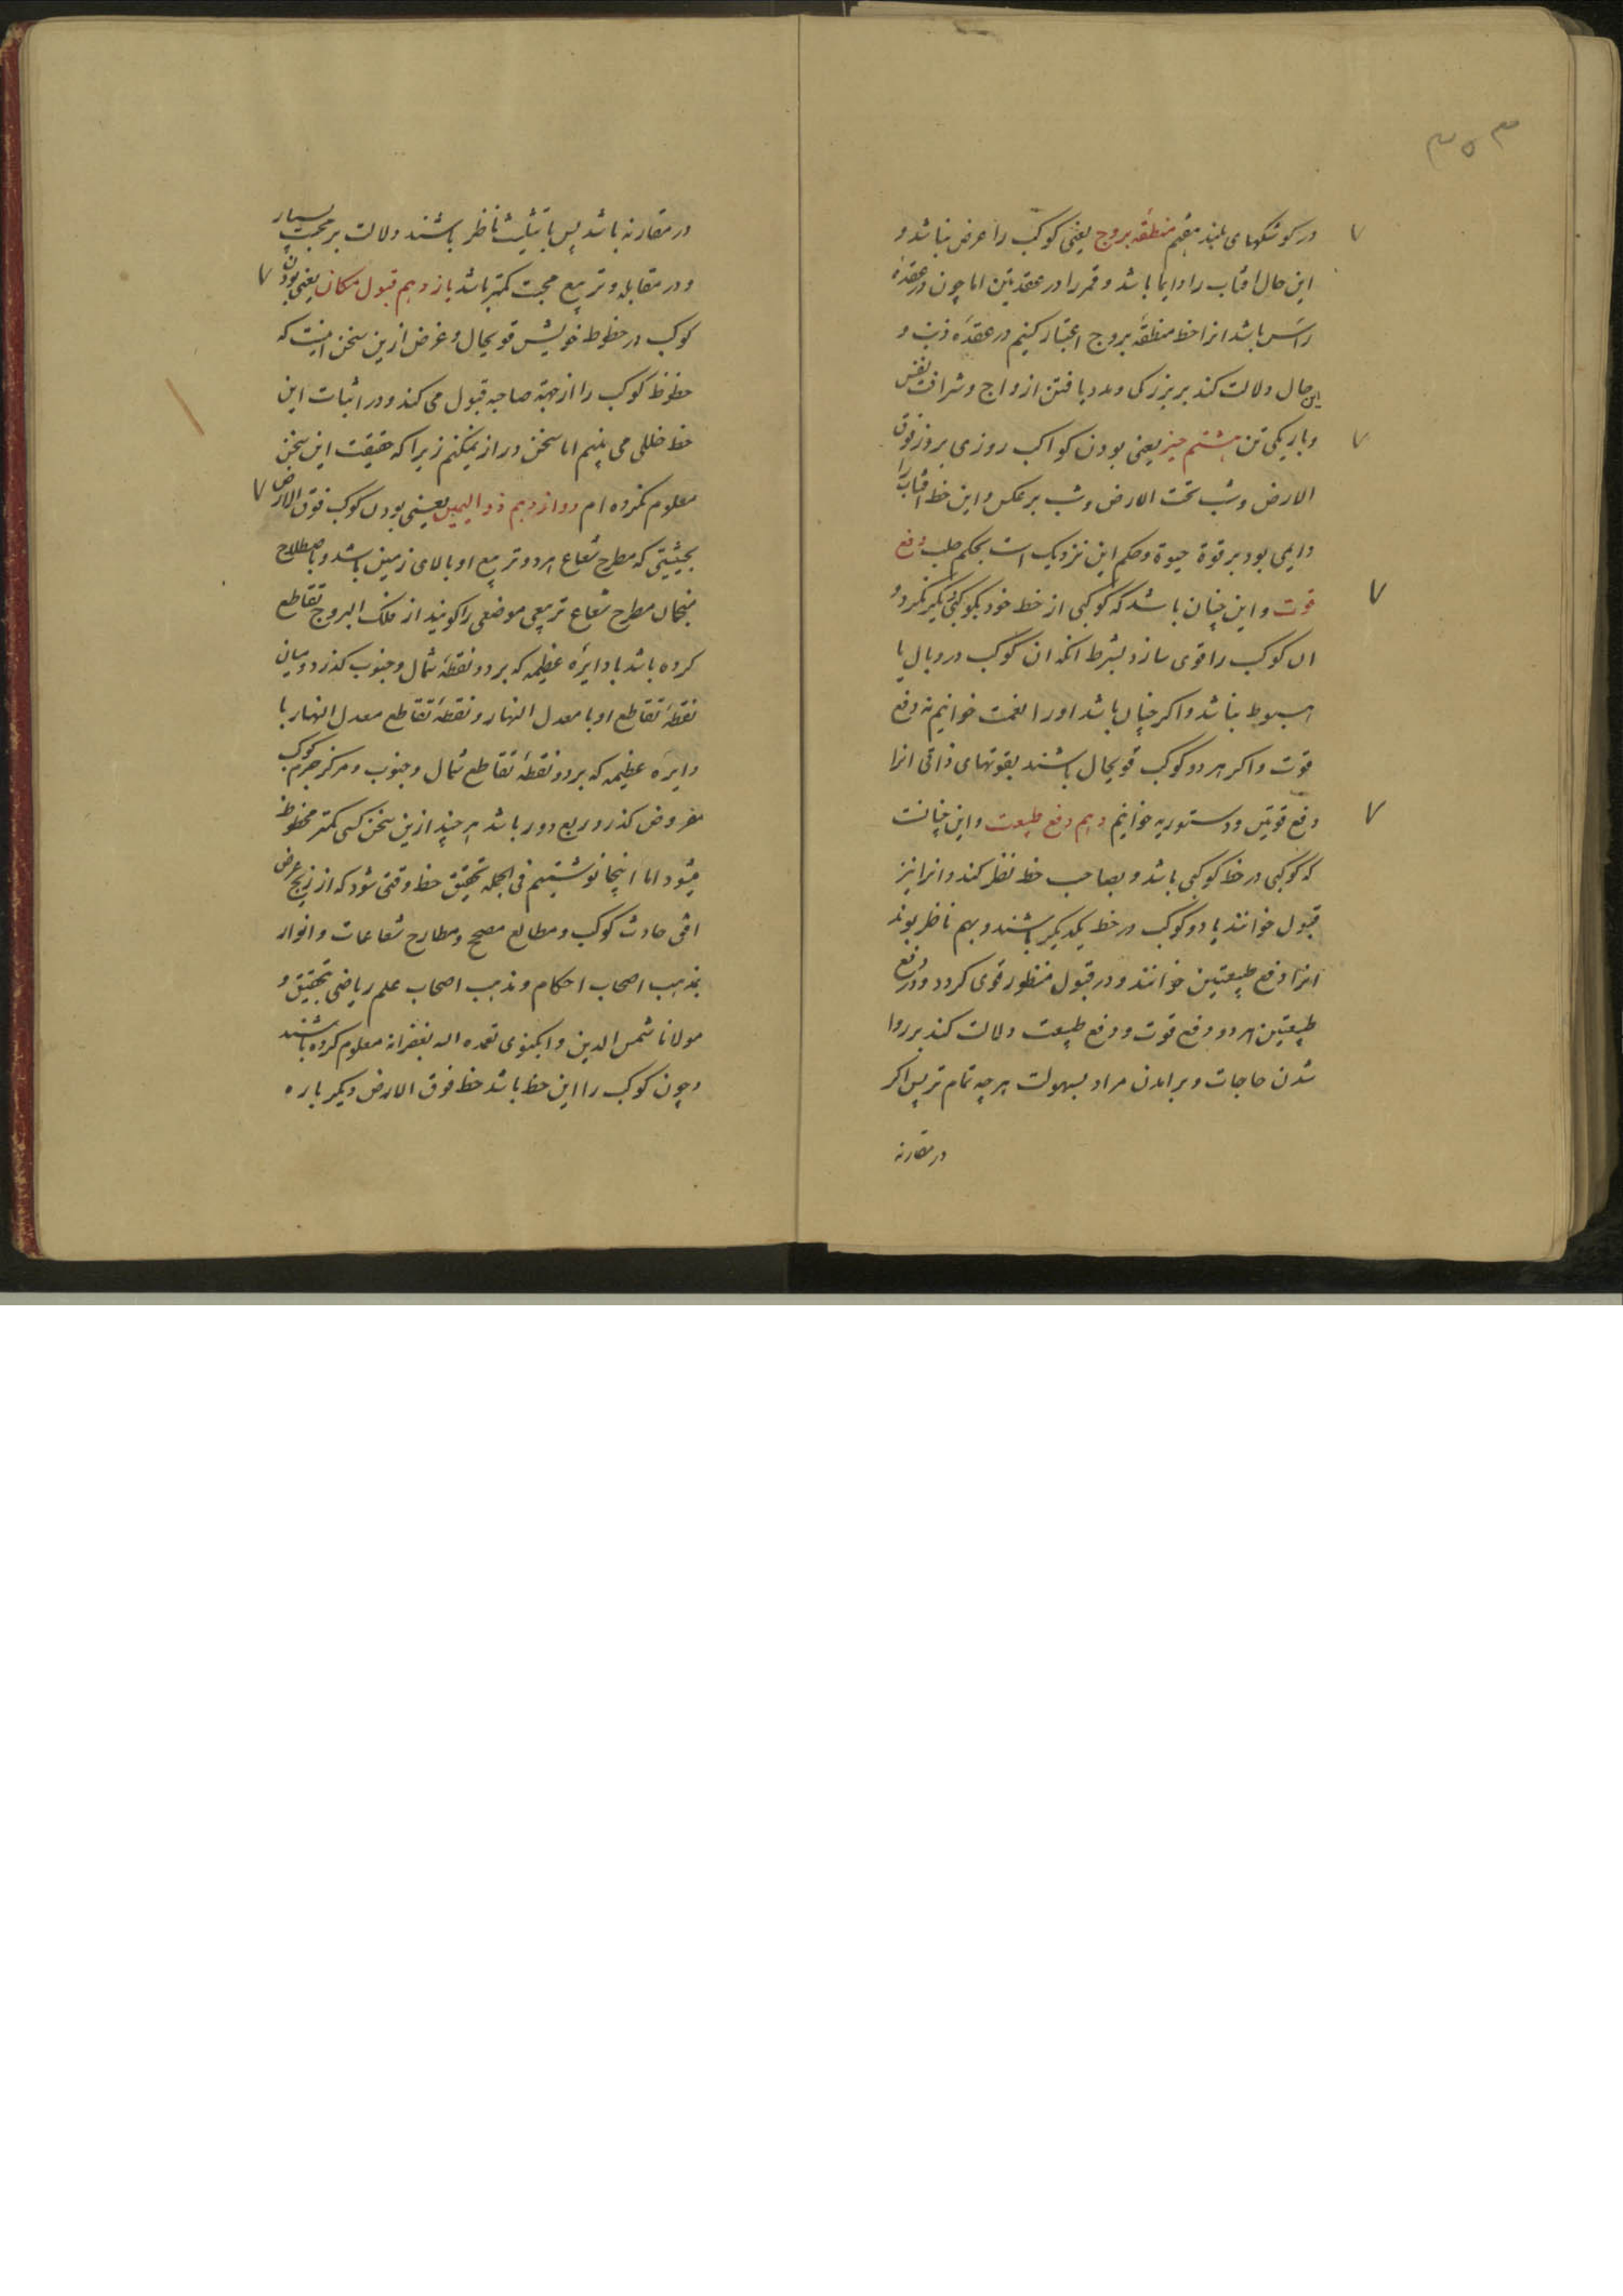 ۳۵۳
در کوشکهای بلند هفتم منطقه بروج یعنی کوکب را عرض نباشد و
این حال افتاب را دایما باشد و قمر را در عقدتین اما چون در عقدهٔ
راس باشد انرا حظ منطقهٔ بروج اعتبار کنیم در عقدهٔ ذنب و
این حال دلالت کند بر بزرکی و مدد یافتن از ارواج و شرافت نفس
و باریکی تن هشتم حیز یعنی بودن کواکب روزی بروز فوق
الارض و شب تحت الارض و شب برعکس و این حظ افتاب را
دایمی بود بر قوة حیوة و حکم این نزدیک است بحکم حلب دفع
قوت و این چنان باشد که کوکبی از حظ خود بکوکبی دیکر نکرد و
ان کوکب را قوی سازد بشرط انکه ان کوکب در وبال یا
هبوط نباشد و اکر چنان باشد او را نعمت خوانیم نه دفع
قوت و اکر هر دو کوکب قویحال باشند بقوتهای ذاتی انرا
دفع قوتین و دستوریه خوانیم دهم دفع طبیعت و این چنانست
که کوکبی در حظ کوکبی باشد و بصاحب حظ نظر کند و انرا نیز
قبول خوانند یا دو کوکب در حظ یکدیکر باشند و بهم ناظر بوند
انرا دفع طبیعتین خوانند و در قبول منظور قوی کردد و در دفع
طبیعتین هر دو و دفع قوت و دفع طبیعت دلالت کند بر روا
شدن حاجات و برامدن مراد بسهولت هرچه تمام تر پس اکر
در مقارنه
در مقارنه باشد پس یا بتثلیث ناظر باشند دلالت بر محبت بسیار
و در مقابله و تربیع محبت کمتر باشد یازدهم قبول مکان یعنی بودن
کوکب در حظوظ خویش قویحال و غرض ازین سخن اینست که
حظوظ کوکب را از جهة صاحبه قبول می کند و در اثبات این
حظ خللی می بینم اما سخن دراز نمیکنم زیرا که حقیقت این سخن
معلوم نکرده ام دوازدهم ذو الیمین یعنی بودن کوکب فوق الارض
بحیثیتی که مطرح شعاع هر دو تربیع او بالای زمین باشد و باصطلاح
منجمان مطرح شعاع تربیعی موضعی را کویند از فلک البروج تقاطع
کرده باشد با دایرهٔ عظیمه که بر دو نقطهٔ شمال و جنوب کذرد و میان
نقطهٔ تقاطع او با معدل النهار و نقطهٔ تقاطع معدل النهار با
دایرهٔ عظیمه که بر دو نقطهٔ تقاطع شمال و جنوب و مرکز جرم کوکب
مفروض کذرد ربع دور باشد هر چند ازین سخن کسی کمتر محظوظ
میشود اما اینجا نوشتیم فی الجمله تحقیق حظ وقتی شود که از زیج عرض
افق حادث کوکب و مطالع مصحح و مطارح شعاعات و انوار
بمذهب اصحاب احکام و مذهب اصحاب علم ریاضی بتحقیق و
مولانا شمس الدین وابکنوی تغمده اله بغفرانه معلوم کرده باشند
و چون کوکب را این حظ باشد حظ فوق الارض دیکر باره